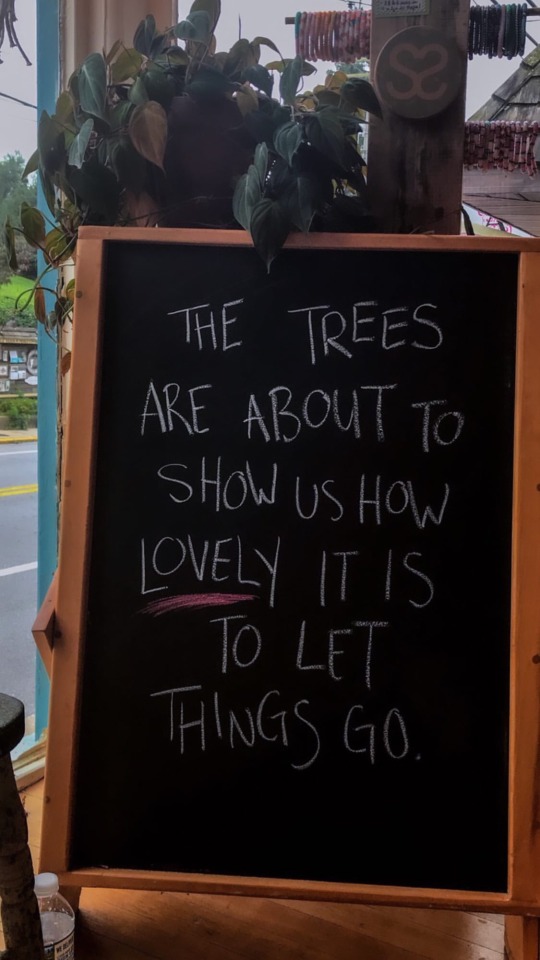 THE TREES
ARE ABOUT TO
SHOW US HOW
LOVELY IT IS
TO LET
THINGS GO.